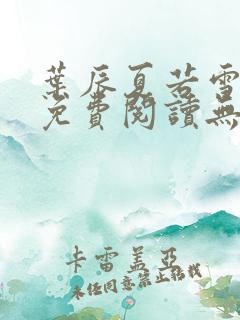 葉辰夏若雪
免費閱讀無
卡雷蓋亞
未经同意禁止转载